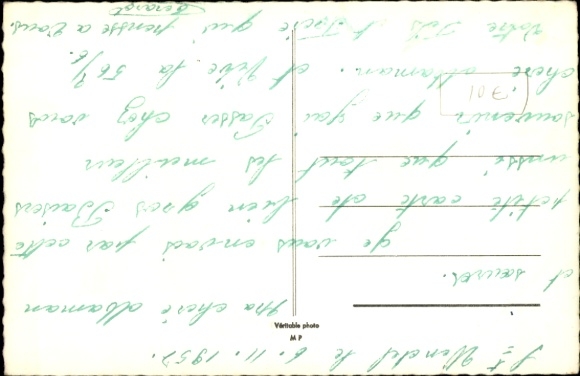 St Wendel le 6.11.1957.
Ma chere Maman
et soeurs.
je vous envoi par cette
petite carte de bien gros Baisers
aussi que tout les meilleur
souvenir que j'ai Passer chez vous
chere Maman. et Vive la 56 2/c.
Votre Fils et Frere qui pensse a vous.
Gerard
701
Véritable photo
M P